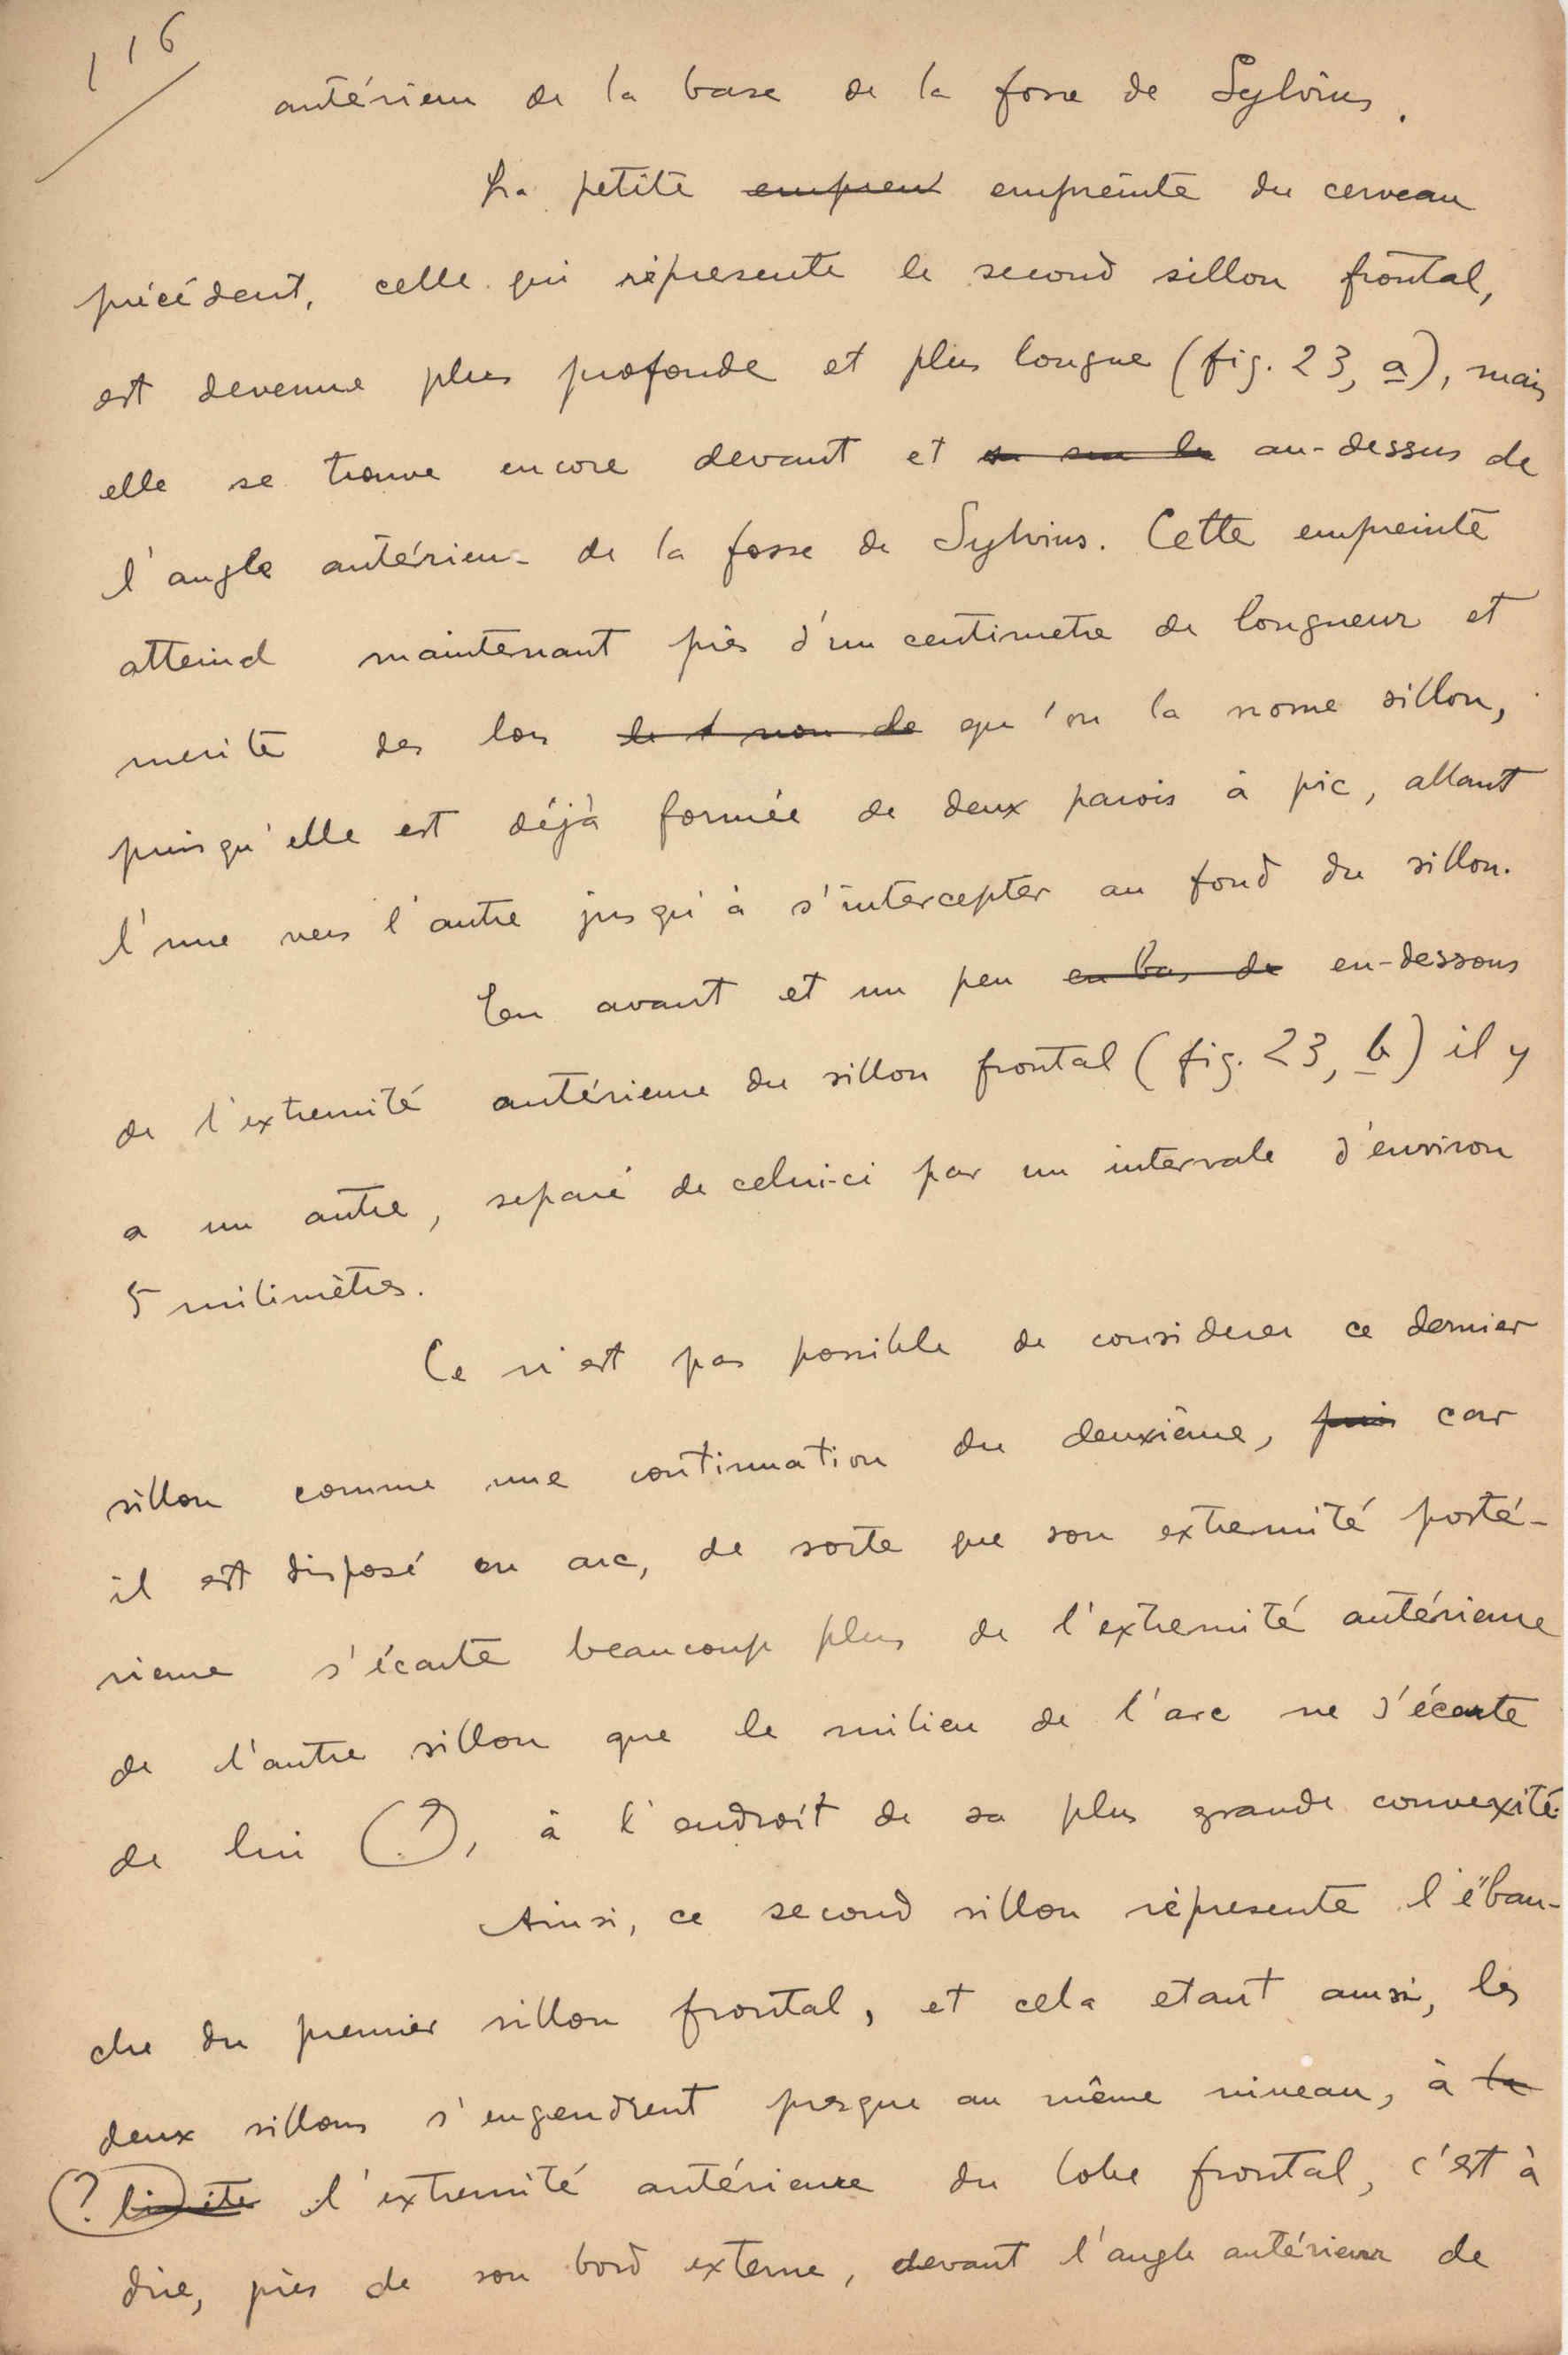 116
antérieur de la base de la fosse de Sylvius.
La petite empreint empreinte du cerveau
précédent, celle qui répresente le second sillon frontal,
est devenue plus profonde et plus longue (fig. 23, a), mais
elle se trouve encore devant et au-dessus de
l'angle antérieur de la fosse de Sylvius. Cette empreinte
atteind maintenant près d'un centimetre de longueur et
merite des lors le non de qu'on la nome sillon,
puisqu'elle est déjà formée de deux parois à pic, allant
l'une vers l'autre jusqu'à s'intercepter au fond du sillon.
En avant et un peu en bas de en-dessous
de l'extremité antérieure du sillon frontal (fig. 23, b) il y
a un autre, separé de celui-ci par un intervale d'environ
5 milimètres.
Ce n'est pas possible de considerer ce dernier
sillon comme une continuation du deuxième, puis car
il est disposé en arc, de sorte que son extremité posté-
rieure s'écarte beaucoup plus de l'extremité antérieure
de l'autre sillon que le milieu de l'arc ne s'écarte
de lui (?), à l'endroit de sa plus grande convexité.
Ainsi, ce second sillon répresente l'ébau-
che du premier sillon frontal, et cela etant ainsi, les
deux sillons s'engendrent presque au même niveau, à la
? limite l'extremité antérieure du lobe frontal, c'est à
dire, près de son bord externe, devant l'angle antérieur de